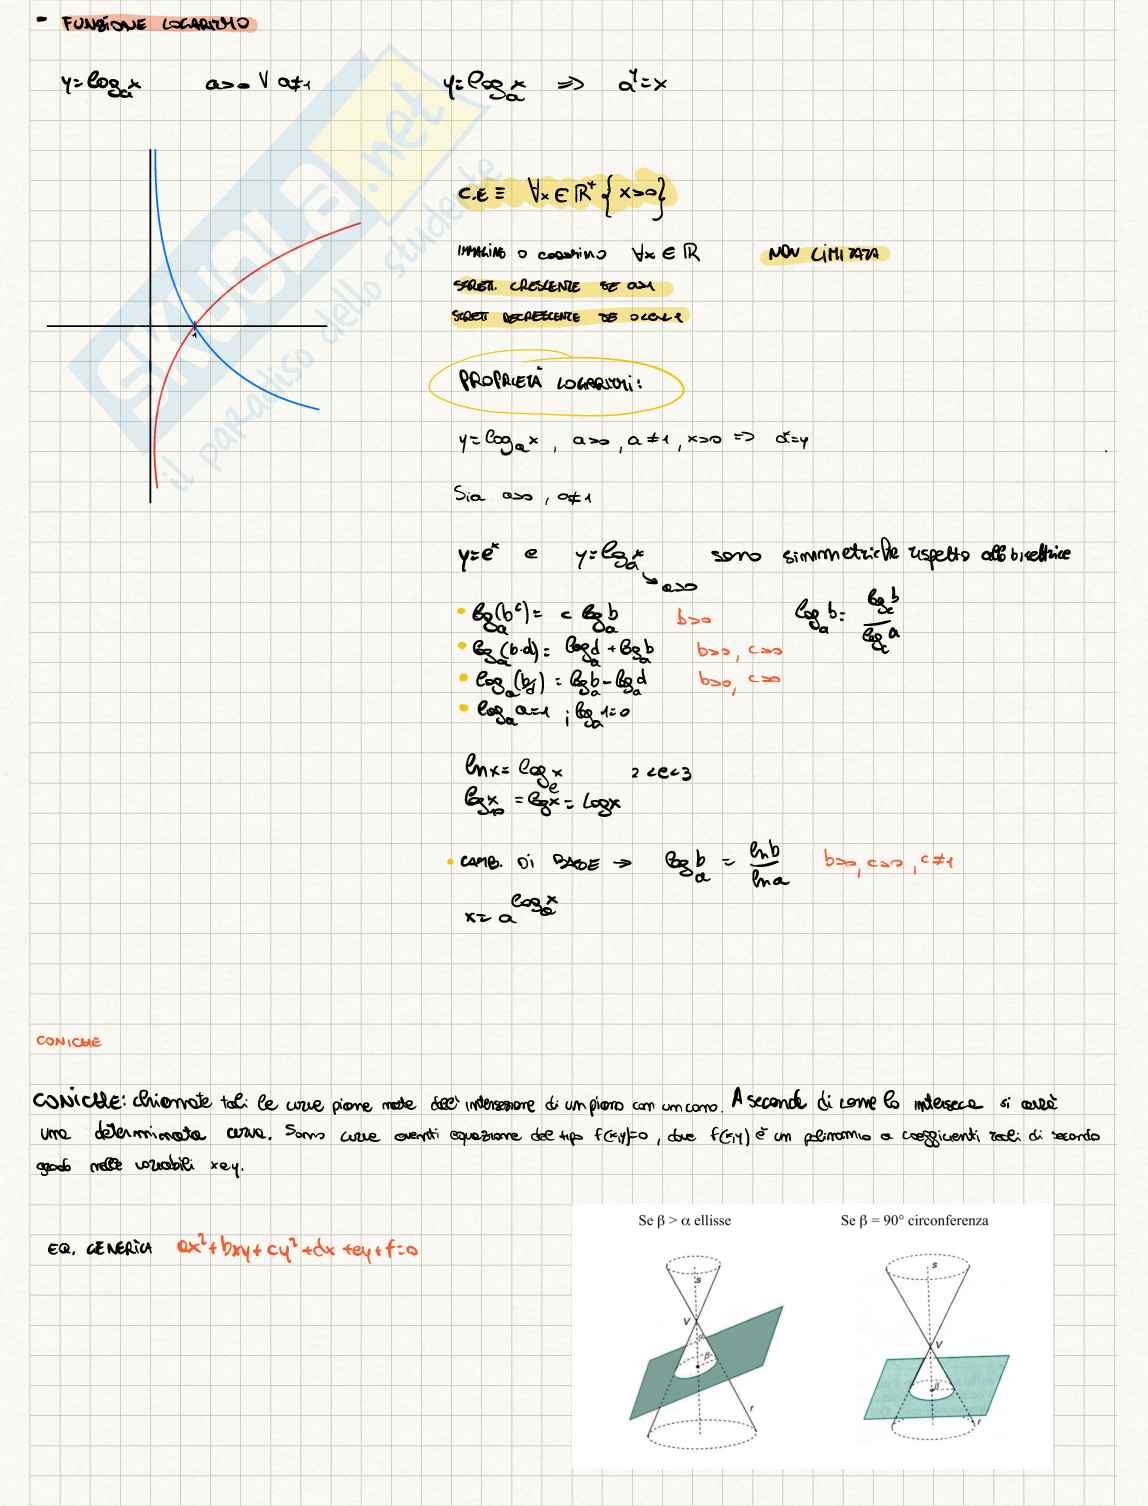 - FUNZIONE LOGARITMO
y=logₐx a>0 ∨ a≠1 y=logₐx => aʸ=x
SKUOLA.net
il paradiso dello studente
C.E ≡ ∀x∈ℝ⁺{x>0}
IMMAGINE O codominio ∀x∈ℝ NON LIMITATA
STRETT. CRESCENTE SE a>1
STRETT DECRESCENTE SE 0<a<1
1
PROPRIETÀ LOGARITMI:
y=logₐx, a>0, a≠1, x>0 => aˣ=y
Sia a>0, a≠1
y=eˣ e y=logₐx sono simmetriche rispetto alla bisettrice
a>0
• logₐ(bᶜ)= c logₐb b>0 logₐb= log_c b / log_c a
• logₐ(b·d)= logₐd + logₐb b>0, c>0
• logₐ(b/d) = logₐb - logₐd b>0, c>0
• logₐa=1 ; logₐ1=0
lnx = logₑx 2<e<3
log₁₀x = logx = Logx
• CAMB. DI BASE → logₐb = lnb / lna b>0, c>0, c≠1
x = a^logₐx
CONICHE
CONICHE: chiamate tali le curve piane nate dall'intersezione di un piano con un cono. A seconda di come lo interseca si avrà
una determinata curva. Sono curve aventi equazione del tipo f(x;y)=0, dove f(x;y) è un polinomio a coefficienti reali di secondo
grado nelle variabili x e y.
Se β > α ellisse Se β = 90° circonferenza
EQ. GENERICA ax²+bxy+cy²+dx+ey+f=0
s s
V V
α
β β
r r